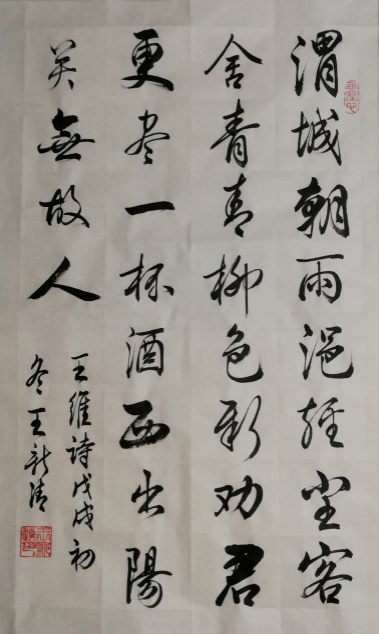 渭城朝雨浥轻尘客
舍青青柳色新劝君
更尽一杯酒西出陽
关無故人
王维诗戊戌初
冬王新清